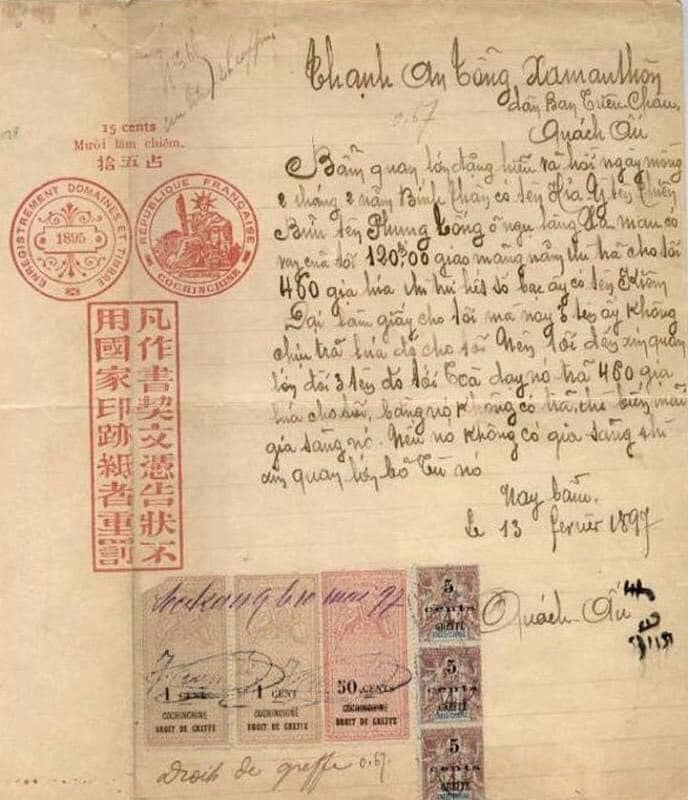 Thạnh An Tổng Xamanthôn
dân Bang Triêu Châu,
Quách Ấu
0.67
15 cents
Mười lăm chiêm.
拾五占
ENREGISTREMENT DOMAINES ET TIMBRE
1895
RÉPUBLIQUE FRANÇAISE
COCHINCHINE
凡作書契文憑告狀不
用國家印跡紙者重罰
Bẩm quan lớn đặng hiểu và hồi ngày mồng
2 tháng 2 năm Bính thân có tên Hứa tên Thiên
Bửu tên Phung Tống ở ngụ làng có
vay của tôi 120$00 giao mảng năm thì trả cho tôi
460 gia lúa thì trừ hết số bạc ấy có tên Kiêm
Đại làm giấy cho tôi mà nay 3 tên ấy không
chịu trả lúa đó cho tôi Nên tôi đến xin quan
lớn đòi 3 tên đó tới Toà dạy nó trả 460 gia
lúa cho tôi, bằng nó không có trả, thì biên mãi
gia sảng nó. Nếu nó không có gia sảng thì
xin quan lớn bỏ Tù nó
Nay bẩm.
Le 13 fevrier 1897
Quách Ấu
10 mai 97
1 CENT
COCHINCHINE
DROIT DE GREFFE
1 CENT
COCHINCHINE
DROIT DE GREFFE
50 CENTS
COCHINCHINE
DROIT DE GREFFE
5
cents
GREFFE
5
cents
GREFFE
5
cents
Droit de greffe 0.67